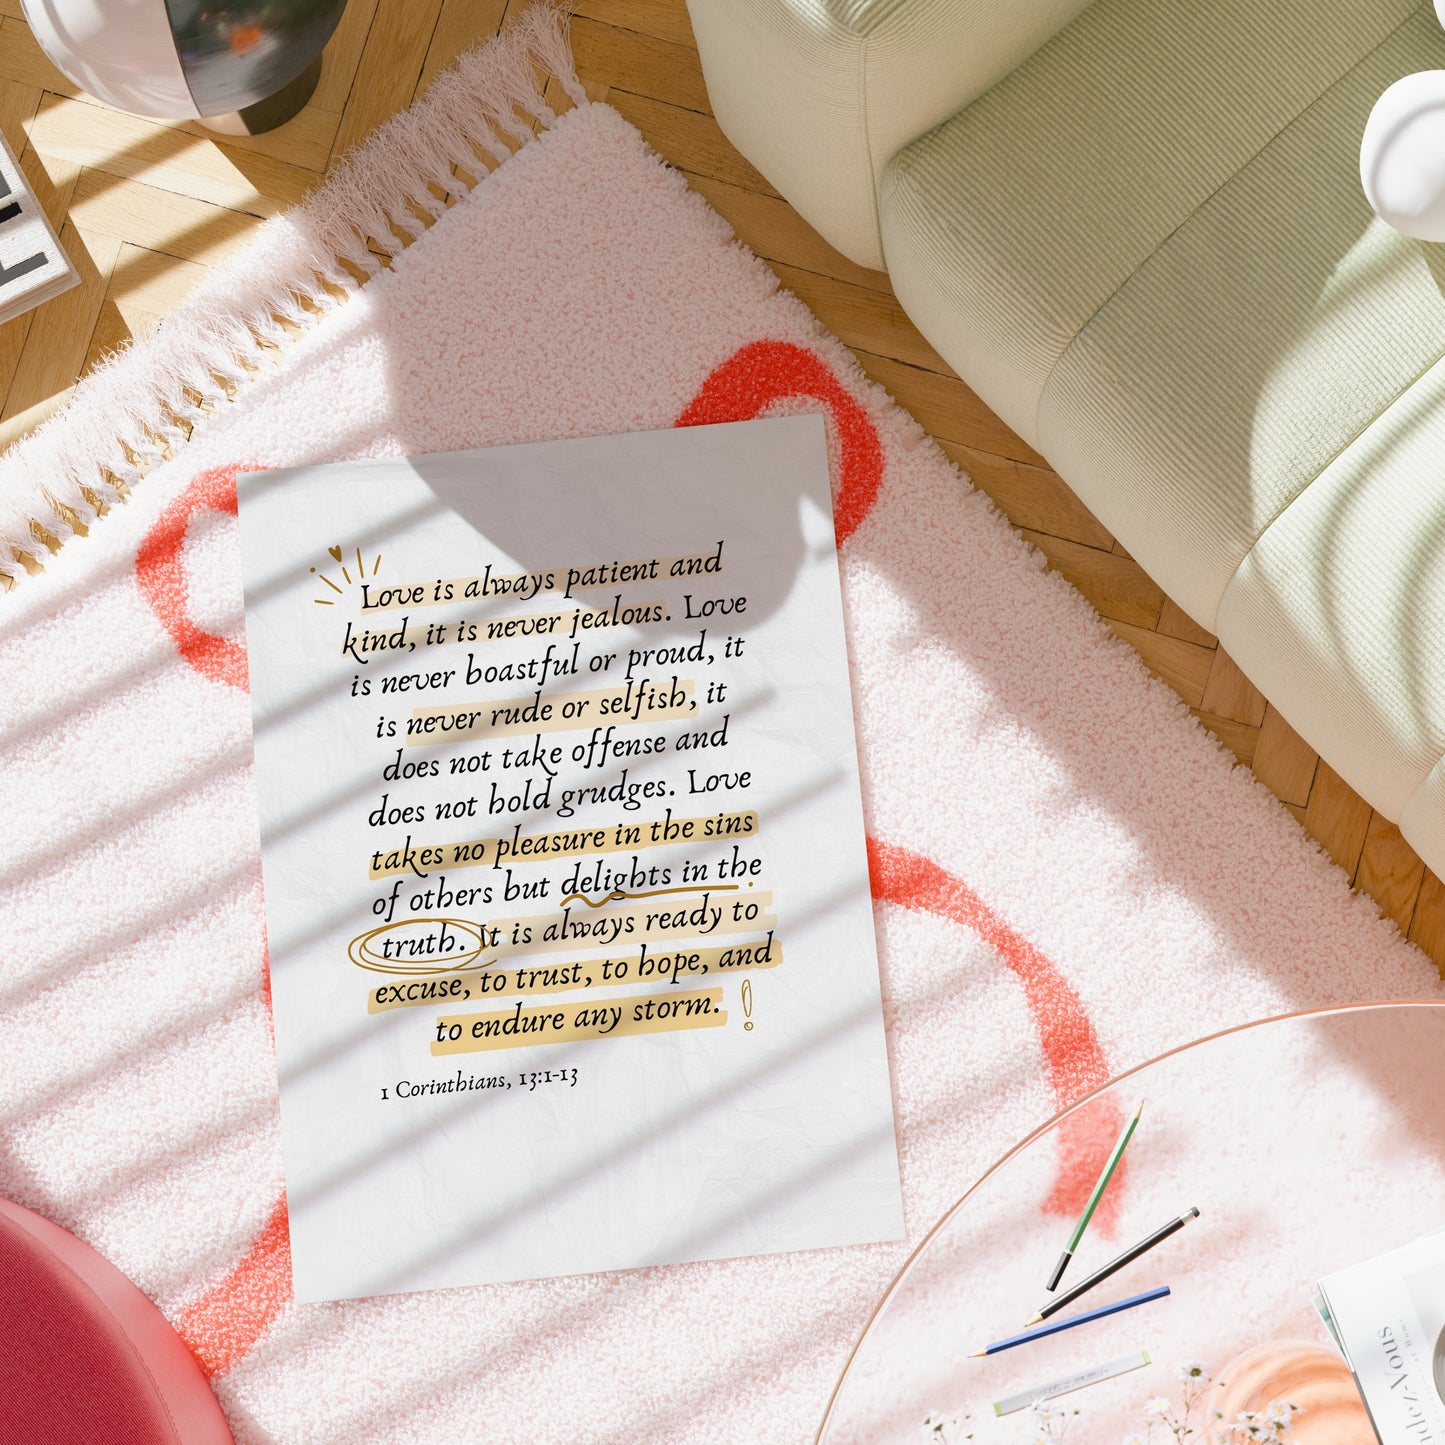 Love is always patient and
kind, it is never jealous. Love
is never boastful or proud, it
is never rude or selfish, it
does not take offense and
does not hold grudges. Love
takes no pleasure in the sins
of others but delights in the
truth. It is always ready to
excuse, to trust, to hope, and
to endure any storm.
1 Corinthians, 13:1-13